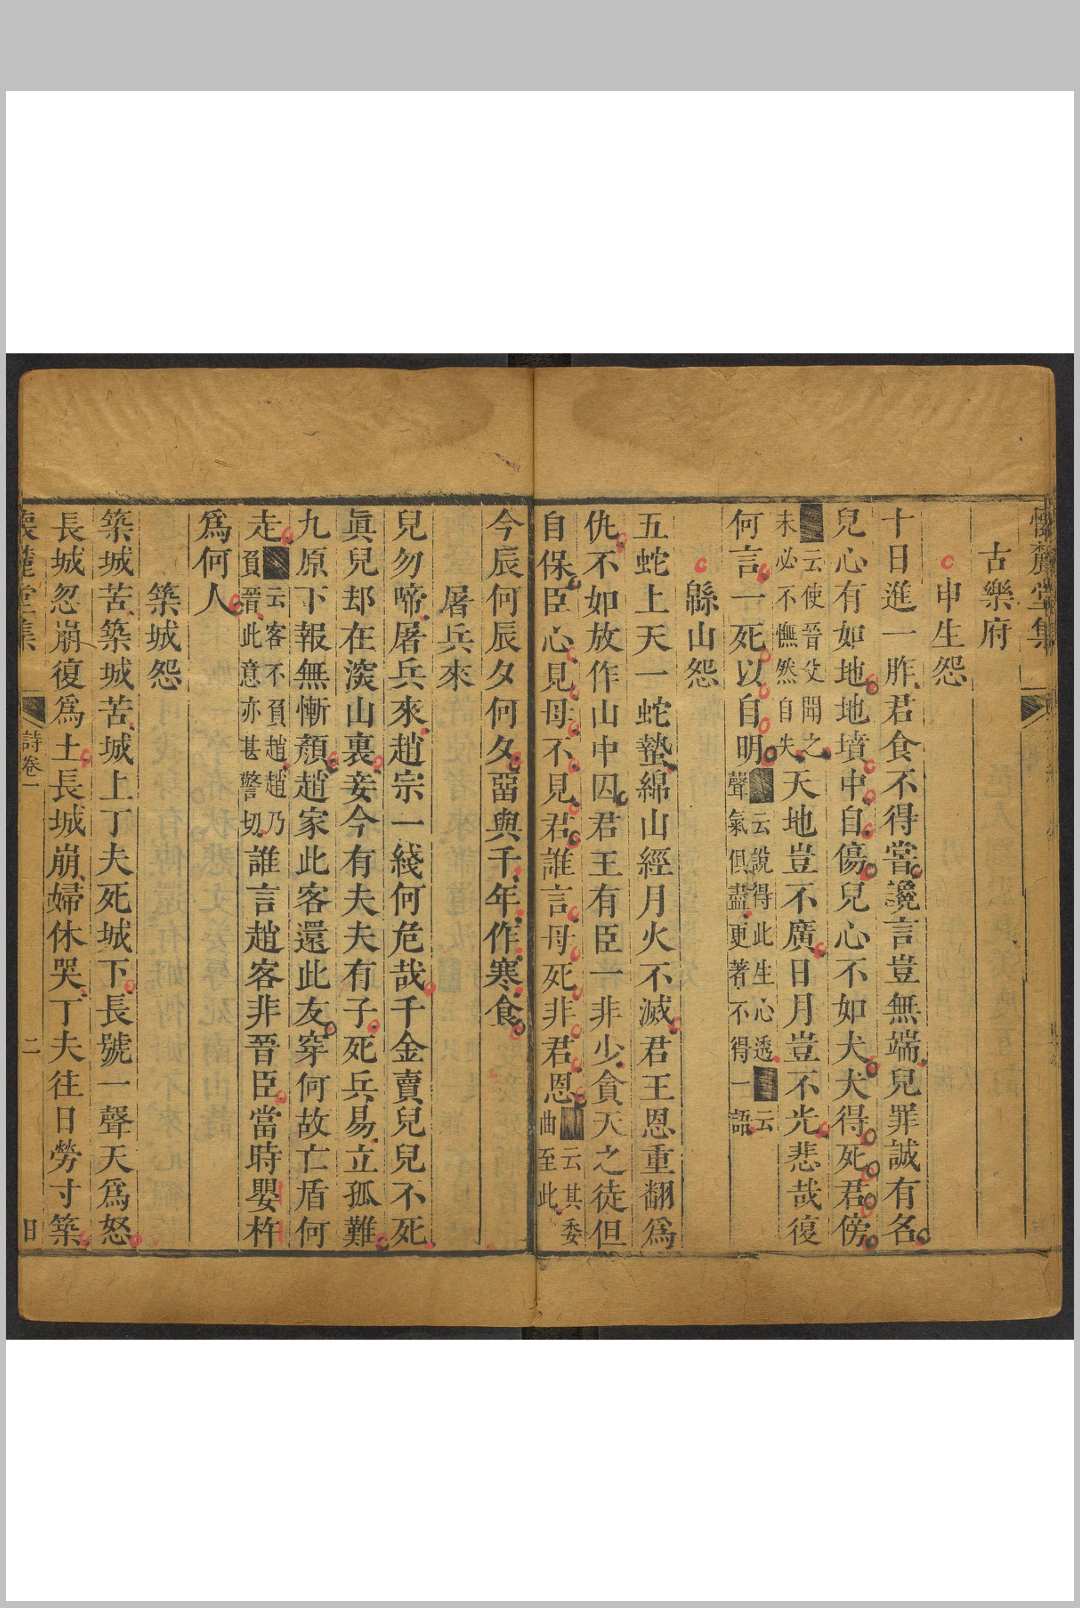 懷麓堂集
古樂府
申生怨
十日進一胙君食不得嘗讒言豈無端兒罪誠有名
兒心有如地地墳中自傷兒心不如犬犬得死君傍
云使晉父聞之
未必不憮然自失
天地豈不廣日月豈不光悲哉復
何言一死以自明
云說得此生心透
云
聲氣俱盡更著不得一語
緜山怨
五蛇上天一蛇蟄綿山經月火不滅君王恩重翻爲
仇不如放作山中囚君王有臣一非少貪天之徒但
自保臣心見母不見君誰言母死非君恩
云其委
曲至此
今辰何辰夕何夕畱與千年作寒食
屠兵來
兒勿啼屠兵來趙宗一綫何危哉千金賣兒兒不死
眞兒却在深山裏妾今有夫夫有子死兵易立孤難
九原下報無慚顏趙家此客還此友穿何故亡盾何
走
云客不負趙趙乃
負晉此意亦甚警切
誰言趙客非晉臣當時嬰杵
爲何人
築城怨
築城苦築城苦城上丁夫死城下長號一聲天爲怒
長城忽崩復爲土長城崩婦休哭丁夫往日勞寸築
懷麓堂集
詩卷一
二